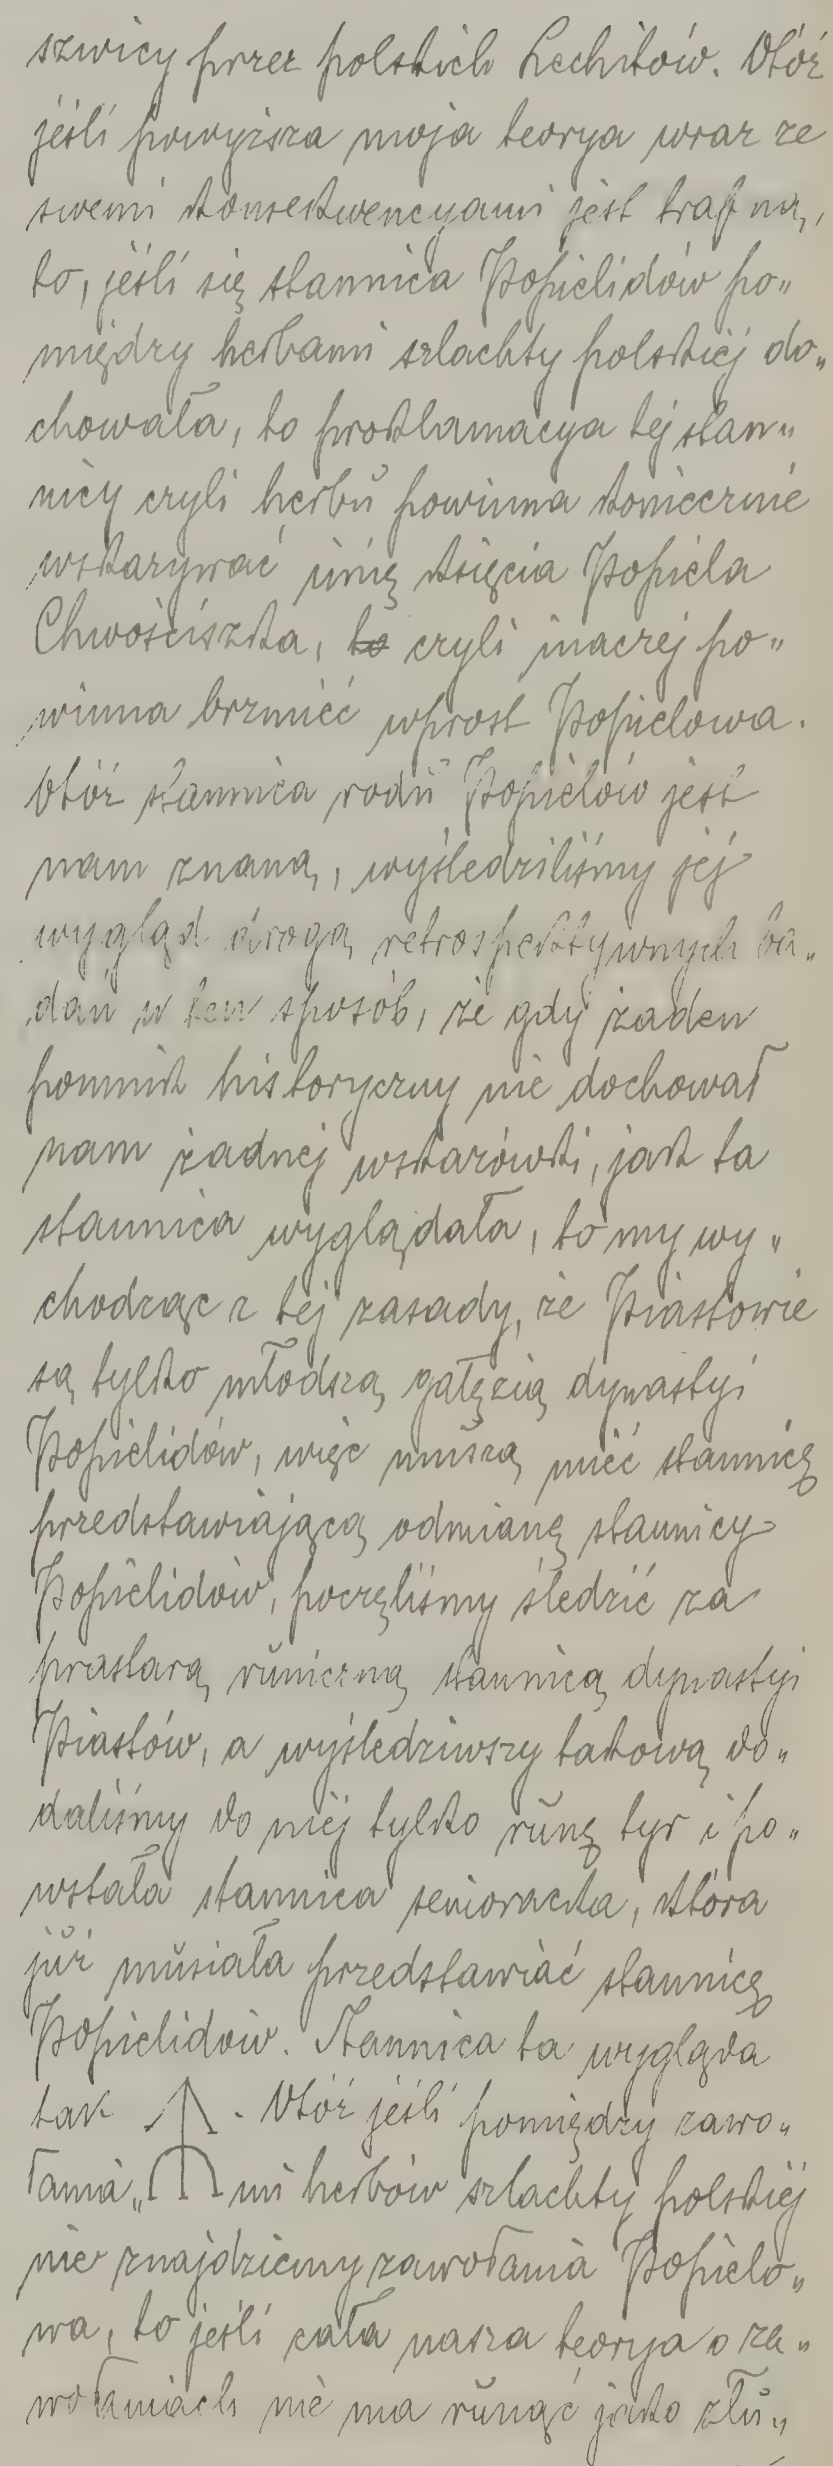 szwicy przez polskich Lechitów. Otóż
jeśli powyższa moja teorya wraz ze
swemi konsekwencyami jest trafną,
to, jeśli się stannica Popielidów po„
między herbami szlachty polskiéj do„
chowała, to proklamacya tej stan„
nicy czyli herbu powinna koniecznie
wskazywać imię księcia Popiela
Chwościszka, to czyli inaczej po„
winna brzmieć wprost Popielowa.
Otóż stannica rodu Popielów jest
nam znaną, wyśledziliśmy jéj
wygląd drogą retrospektywnych ba„
dań w ten sposób, że gdy żaden
pomnik historyczny nie dochował
nam żadnej wskazówki, jak ta
stannica wyglądała, to my wy„
chodząc z téj zasady, że Piastowie
są tylko młodszą gałęzią dynastyi
Popielidów, więc muszą mieć stannicę
przedstawiającą odmianę stannicy
Popielidów, poczęliśmy śledzić za
prastarą runiczną stannicą dynastyi
Piastów, a wyśledziwszy takową do„
daliśmy do niéj tylko runę tyr i po„
wstała stannica senioracka, która
już musiała przedstawiać stannicę
Popielidów. Stannica ta wygląda
tak . Otóż jeśli pomiędzy zawo„
łania„ mi herbów szlachty polskiéj
nie znajdziemy zawołania Popielo„
wa, to jeśli cała nasza teorya o za„
wołaniach nie ma runąć jako złu„